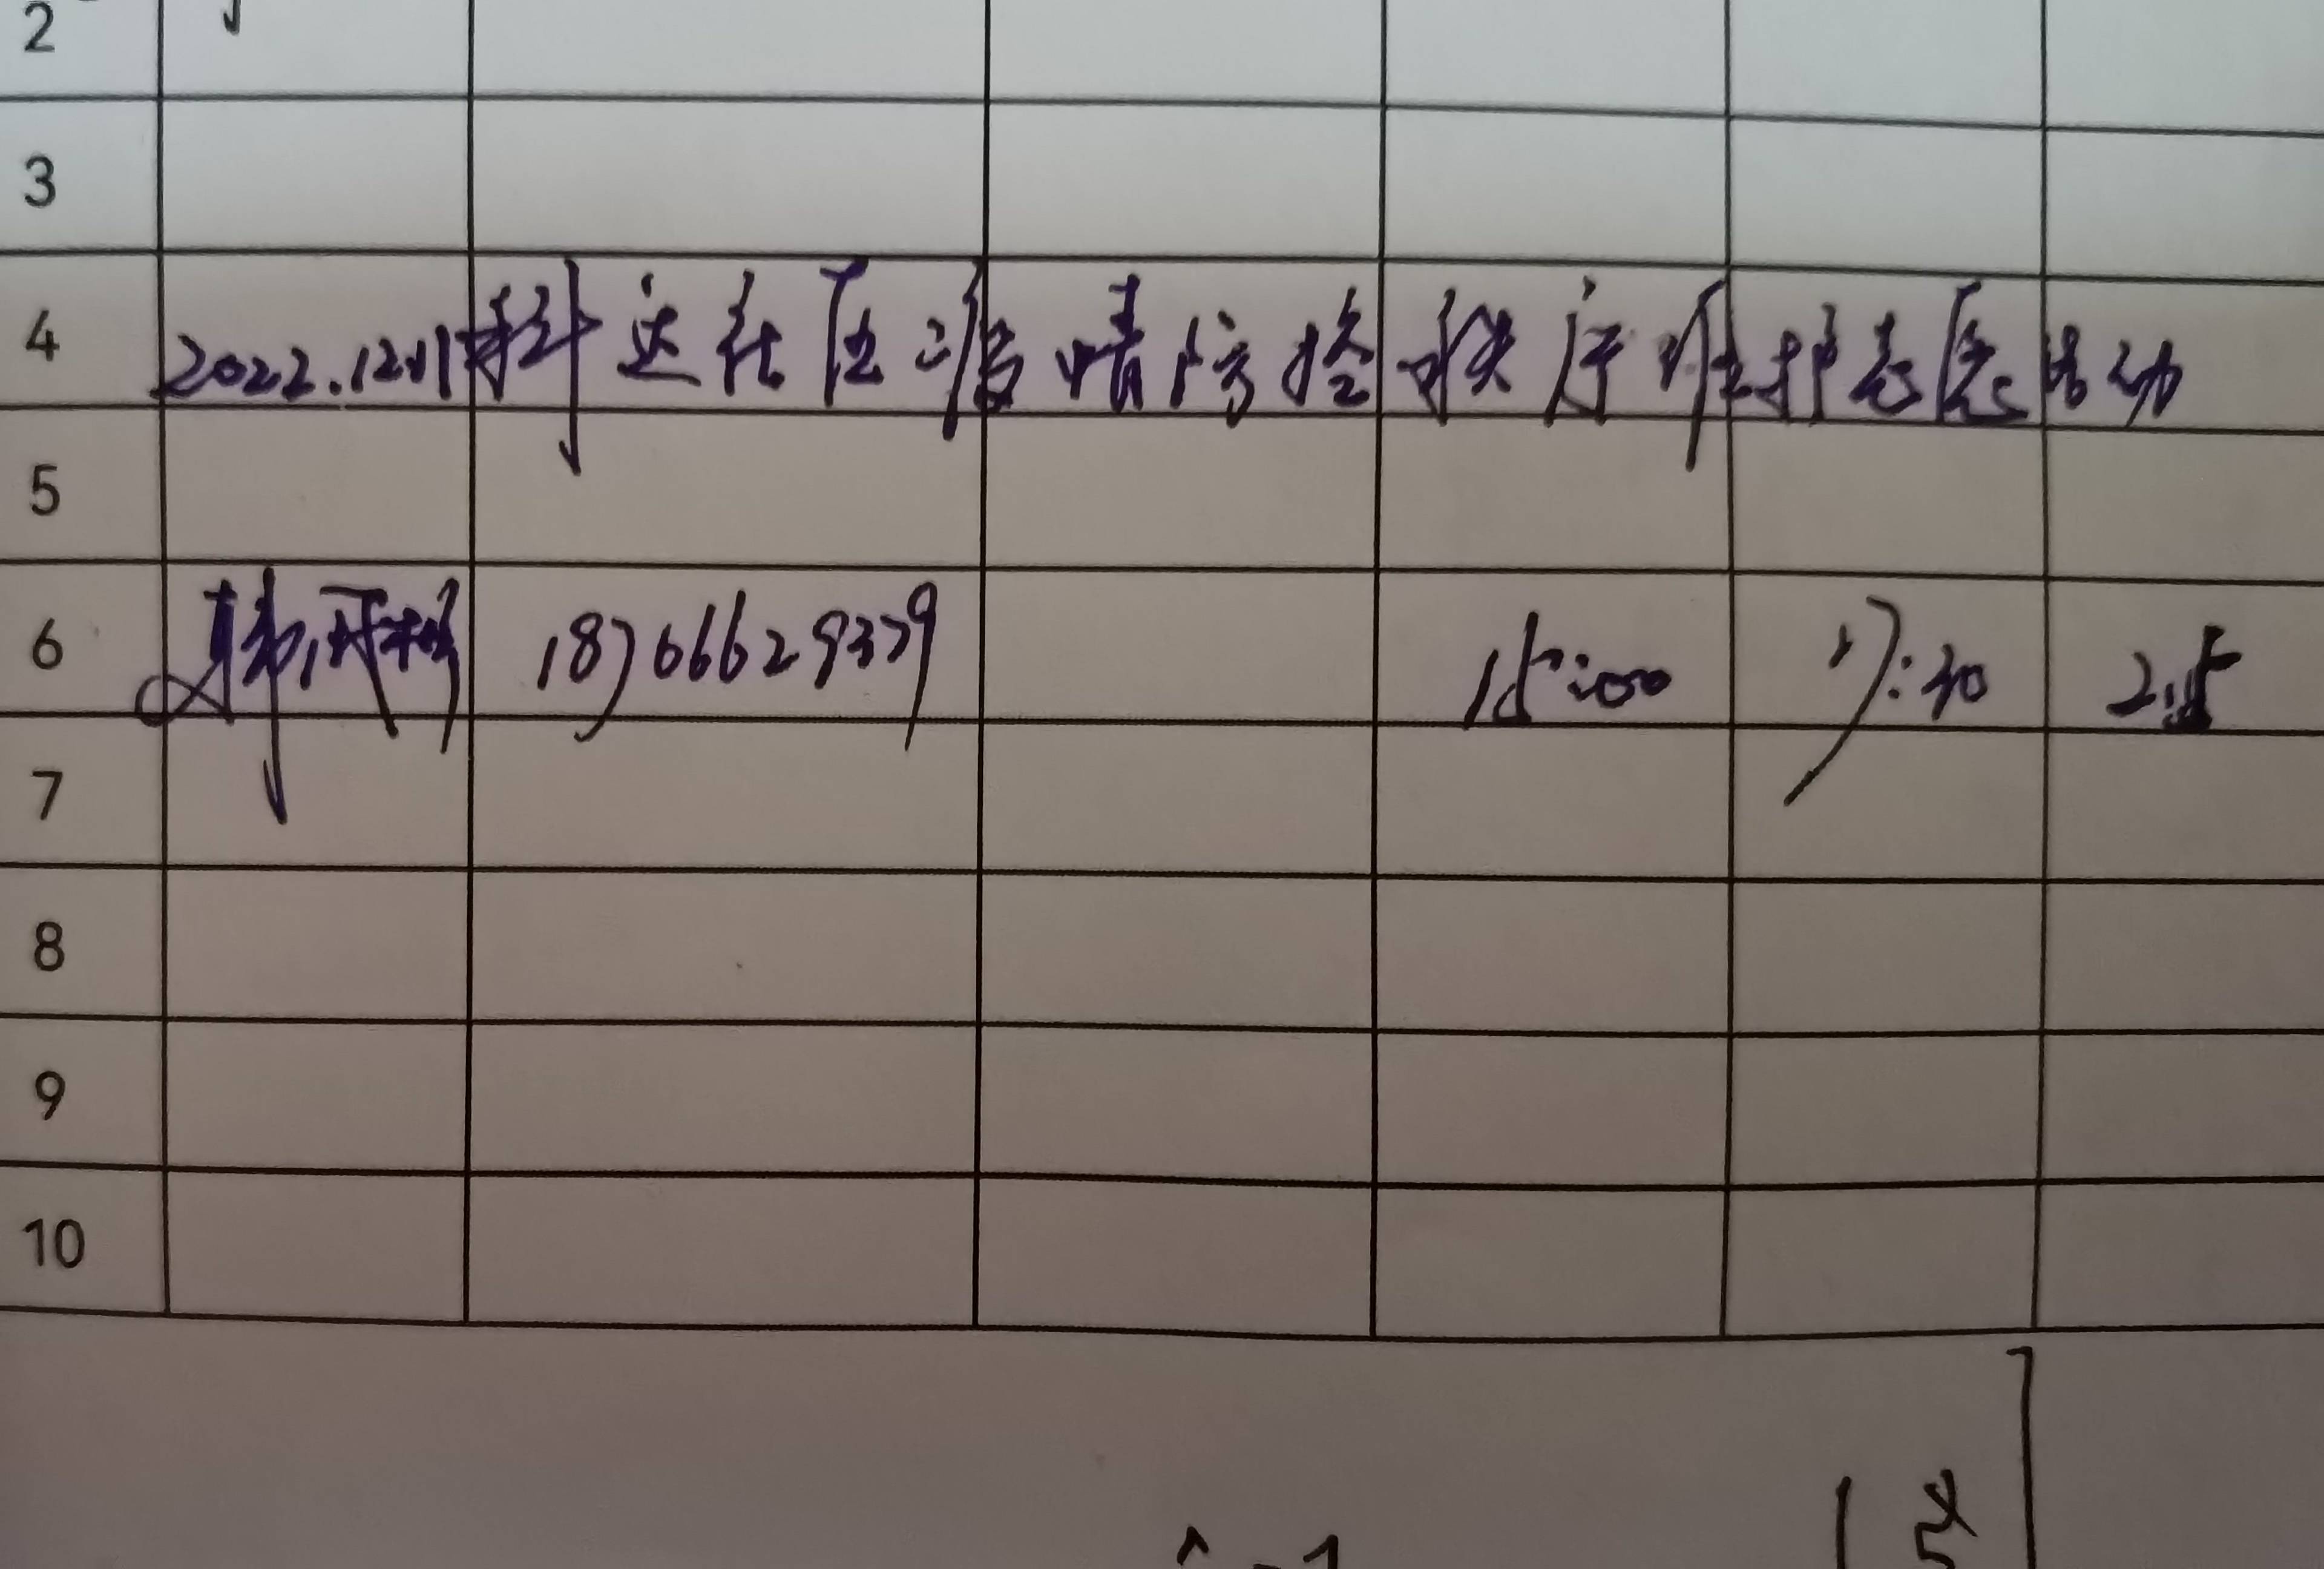 2
3
4 2022.12.11 科达社区疫情防控秩序维护志愿活动
5
6 韩 18766629379 15:00 17:30 2.5
7
8
9
10